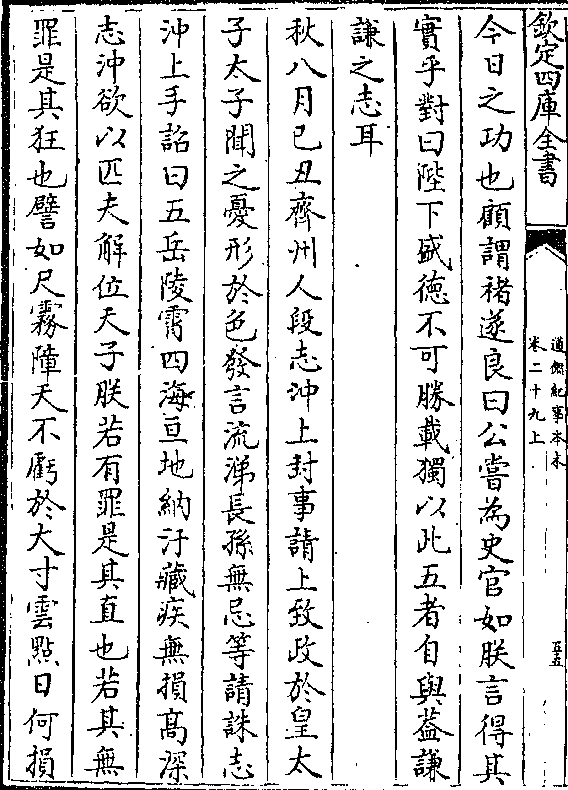 欽定四庫全書
通鑑紀事本末
卷二十九上
五五
今日之功也顧謂禇遂良曰公嘗為史官如朕言得其
實乎對曰陛下盛德不可勝載獨以此五者自與葢謙
謙之志耳
秋八月己丑齊州人段志沖上封事請上致政於皇太
子太子聞之憂形於色發言流涕長孫無忌等請誅志
沖上手詔曰五岳陵霄四海亘地納汙藏疾無損髙深
志沖欲以匹夫解位天子朕若有罪是其直也若其無
罪是其狂也譬如尺霧障天不虧於大寸雲㸃日何損